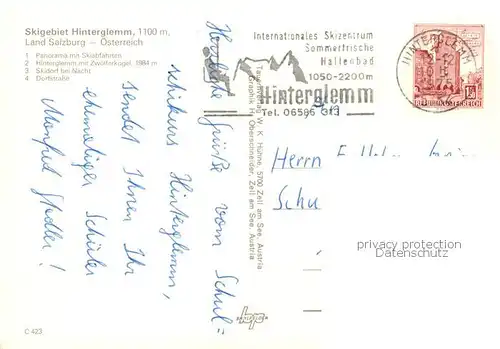 Skigebiet Hinterglemm, 1100 m,
Land Salzburg – Österreich
1 Panorama mit Skiabfahrten
2 Hinterglemm mit Zwölferkogel, 1984 m
3 Skidorf bei Nacht
4 Dorfstraße
Internationales Skizentrum
Sommerfrische
Hallenbad
1050-2200m
Hinterglemm
Tel. 06586 313
HINTERGLEMM
REPUBLIK ÖSTERREICH
Herzliche Grüße vom Schul-
schikurs Hinterglemm,
sendet Ihnen Ihr
ehemaliger Schüler
Manfred Stedler!
Tauernverlag W. K. Hühne, 5700 Zell am See, Austria
Graphik H. Oberschneider, Zell am See, Austria
Herrn
Schu
privacy protection
Datenschutz
C 423